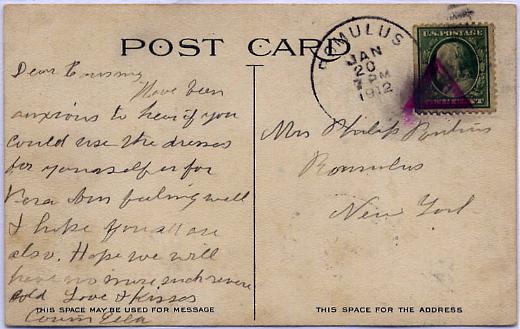 POST CARD
ROMULUS
JAN
20
PM
1912
U.S. POSTAGE
ONE CENT
Dear Cousin
Have been
anxious to hear if you
could use the dresses
for yourself or for
Vera Am feeling well
I hope you all are
also. Hope we will
have no more such severe
cold Love & Kisses
Cousin Ella
Mrs Philip
Romulus
New York
THIS SPACE MAY BE USED FOR MESSAGE
THIS SPACE FOR THE ADDRESS